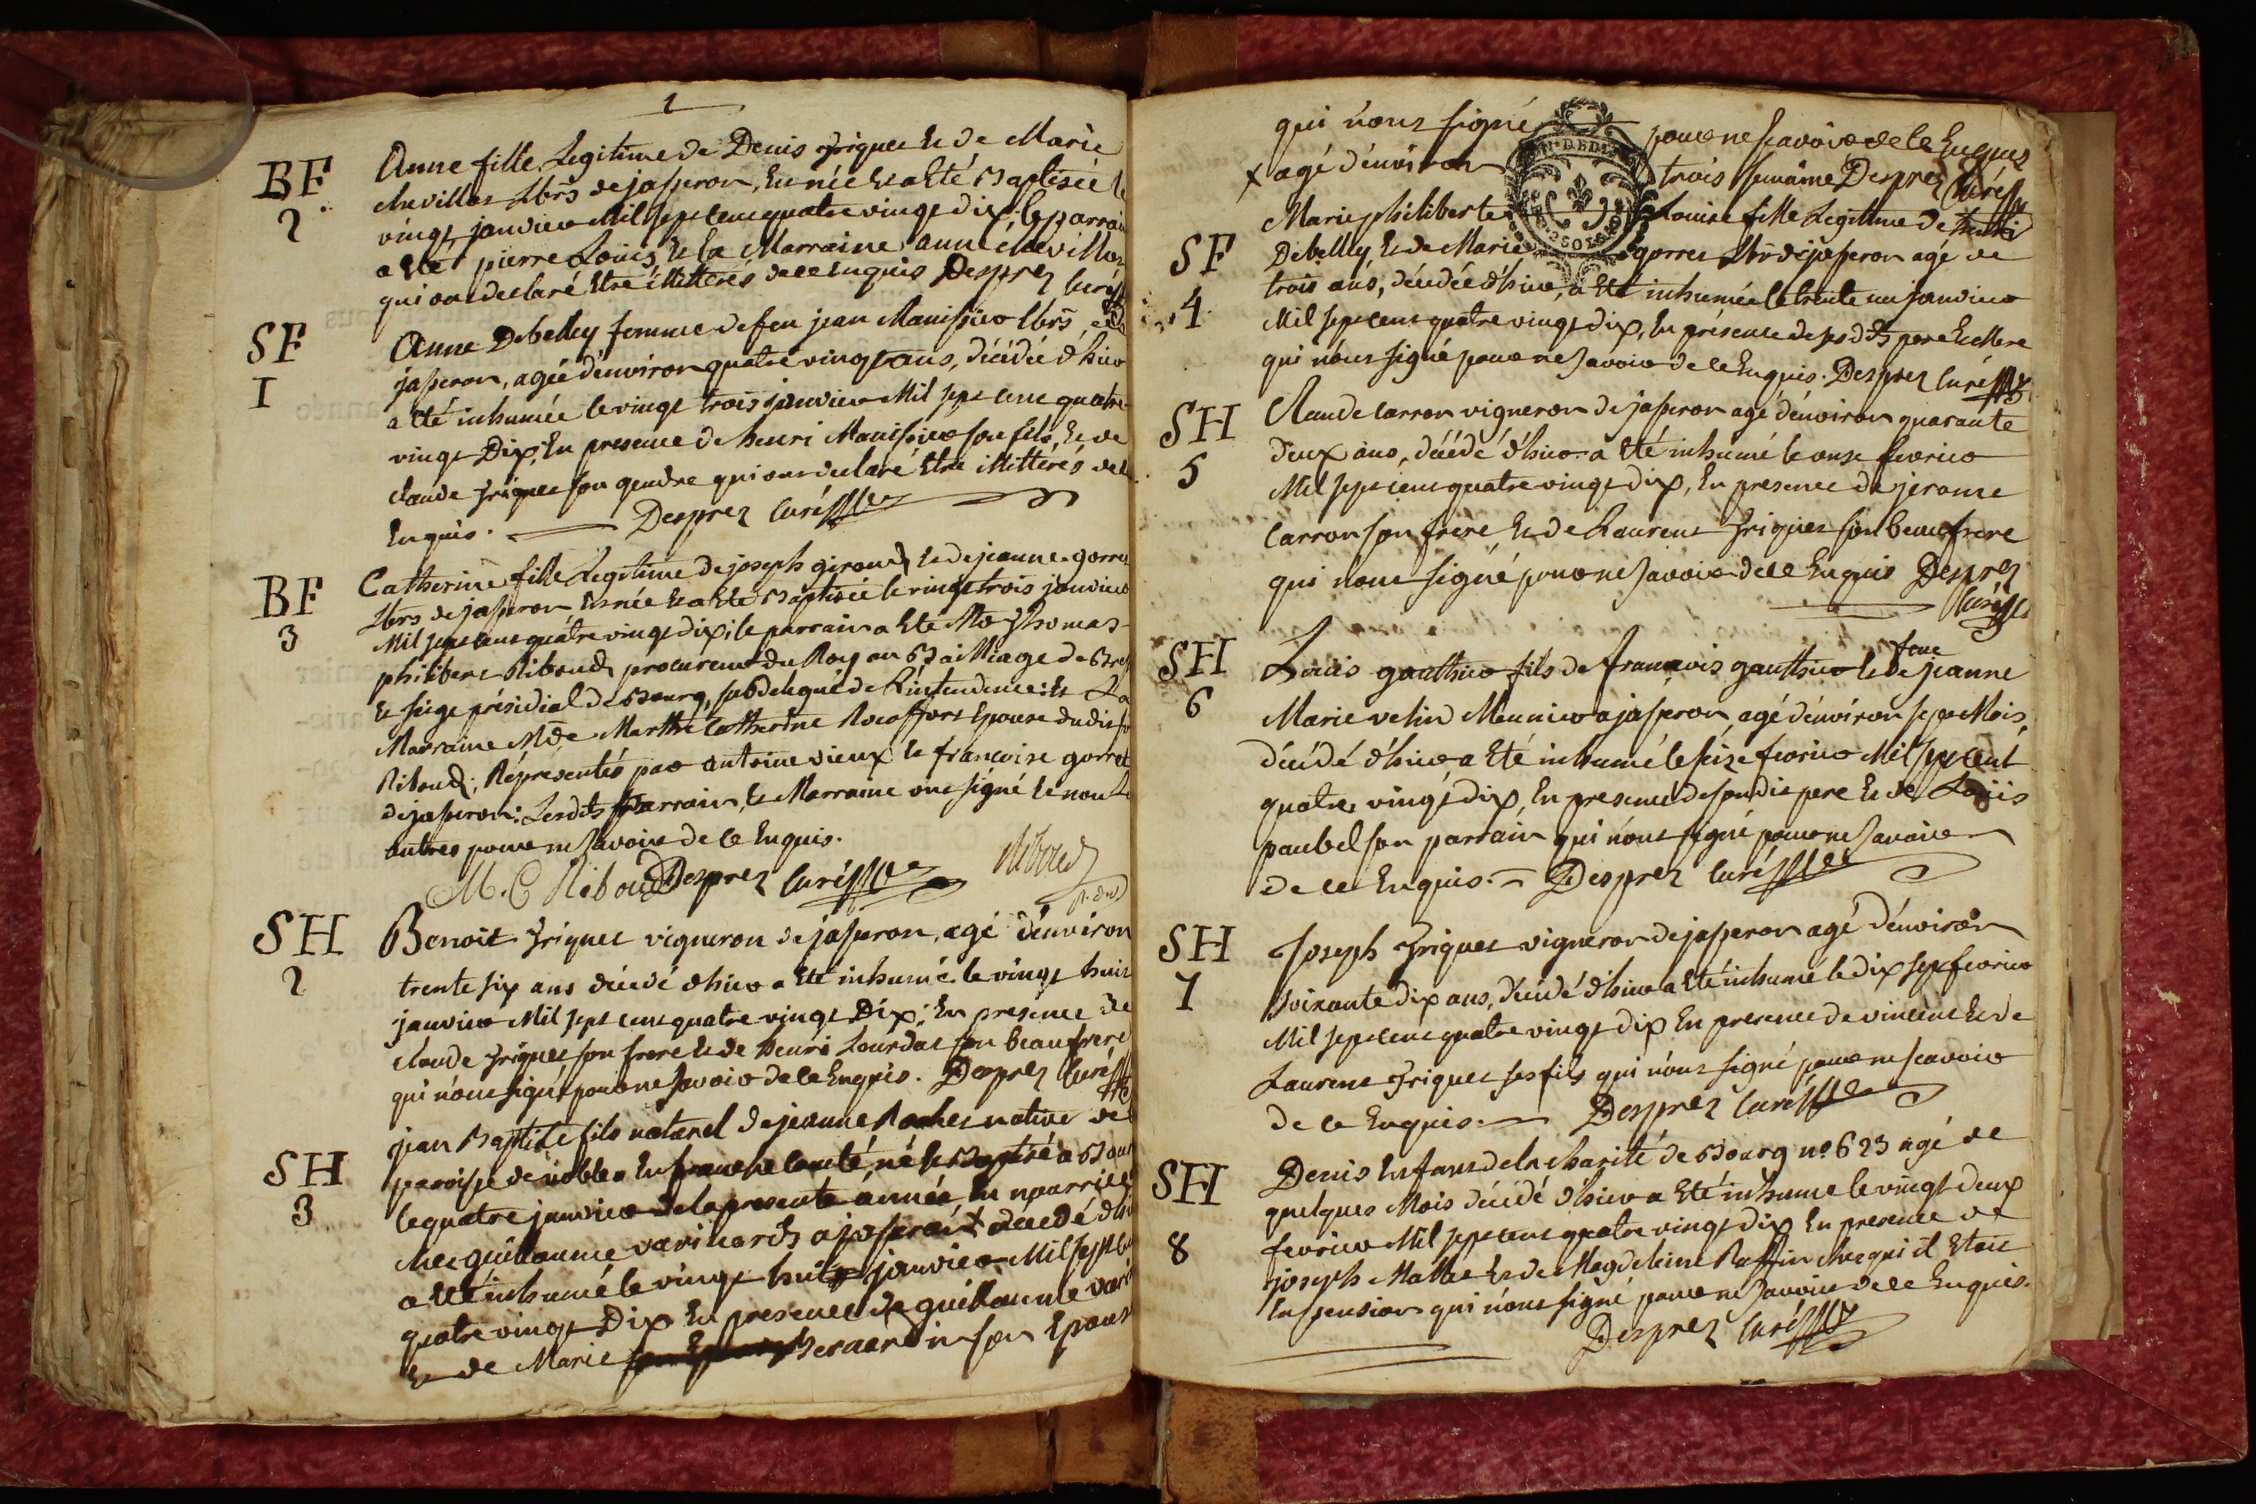 1
BF
2
Anne fille Legitime de Denis friquet Et de Marie
chevillar Lbrs de jasseron, Est née Et a Eté Baptisée le
vingt janvier Mil sept cent quatre vingt dix; le parrain
a Eté pierre Louis Et la Marraine anne
qui ont declaré Etre illitterés de ce Enquis Desprez Curé
SF
1
Anne Debelley femme de feu jean Manissier Lbrs de
jasseron, agée d'environ quatre vingt ans, décédée d'hier
a été inhumée le vingt trois janvier Mil sept cent quatre
vingt Dix, En presence de henri Manissier son fils, Et de
claude friquet son gendre qui ont declaré Etre illitterés de ce
Enquis. Desprez Curé
BF
3
Catherine fille Legitime de joseph giroud Et de jeanne gorret
Lbrs de jasseron Est née Et a Eté Baptisée le vingt trois janvier
Mil sept cent quatre vingt dix; le parrain a Eté Mre Thomas
philibert Riboud procureur du Roy au Bailliage de Bresse
Et siege présidial de Bourg, subdelegué de L'intendence: Et La
Marraine Mde Marthe Catherine Rocoffort Epouse dudit sr
Riboud; Répresentés par antoine vieux Et francoise gorret
de jasseron; Lesdts parrain, Et Marraine ont signé Et non Les
autres pour ne Savoir de ce Enquis.
M. C Riboud Desprez Curé Riboud
SH
2
Benoit friquet vigneron de jasseron, agé d'environ
trente six ans décédé d'hier a Eté inhumé le vingt huit
janvier Mil sept cent quatre vingt Dix; En présence de
claude friquet son frere Et de henri Lourdat son beaufrere
qui n'ont signé pour ne Savoir de ce Enquis. Desprez Curé
SH
3
jean Baptiste fils naturel de jeanne Rochet native de
paroisse de nobles En franche comté, né Et Baptisé a Bourg
le quatre janvier de la presente année En nourrice
chez guillaume varichard a jasseron x decédé d'hier
a Eté inhumé le vingt huit janvier Mil sept cent
quatre vingt Dix En presence de guillaume
Et de Marie Bernardin son Epouse
qui n'ont signé pour ne scavoir de ce Enquis
x agé d'environ trois semaine Desprez Curé
SF
4
Marie philiberte Louise fille Legitime de
Debelley, Et de Marie gorret Lbrs de jasseron agé de
trois ans, décédée d'hier, a Eté inhumée le trente un janvier
Mil sept cent quatre vingt dix, En présence de ses dts pere Et Mere
qui n'ont signé pour ne Savoir de ce Enquis. Desprez Curé
SH
5
Claude Carron vigneron de jasseron agé d'environ quarante
deux ans, décédé d'hier a Eté inhumé le onze fevrier
Mil sept cent quatre vingt dix, En presence de jerome
Carron son frere Et de Laurent friquet son beaufrere
qui n'ont signé pour ne Savoir de ce Enquis Desprez
Curé
SH
6
Louis gauthier fils de francois gauthier Et de jeanne
Marie velin Meunier a jasseron agé d'environ sept Mois,
décédé d'hier a Eté inhumé le seize fevrier Mil sept cent
quatre vingt dix, En presence de son dit pere Et de Louis
paubel son parrain qui n'ont signé pour ne Savoir
de ce Enquis. Desprez Curé
SH
7
Joseph friquet vigneron de jasseron agé d'environ
soixante dix ans, décédé d'hier a Eté inhumé le dix sept fevrier
Mil sept cent quatre vingt dix En presence de vincent Et de
Laurent friquet ses fils qui n'ont signé pour ne scavoir
de ce Enquis. Desprez Curé
SH
8
Denis Enfant de la charité de Bourg no 623 agé de
quelques Mois décédé d'hier a Eté inhumé le vingt deux
fevrier Mil sept cent quatre vingt dix En presence de
joseph Mallet Et de Magdeleine Raffin chez qui il Etoit
En pension qui n'ont signé pour ne Savoir de ce Enquis.
Desprez Curé